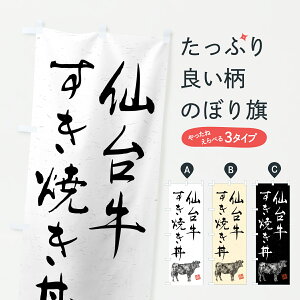 仙台牛
すき焼き丼
たっぷり
良い柄
のぼり旗
やったね
えらべる3タイプ
A
B
C
仙台牛
すき焼き丼
仙台牛
すき焼き丼
仙台牛
すき焼き丼